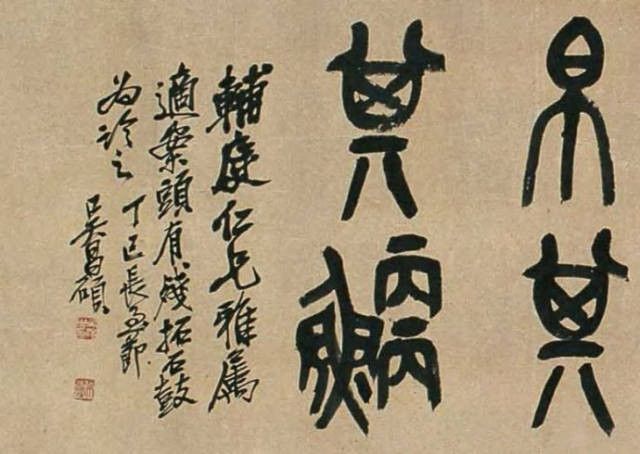 帛其
其
輔庭仁兄雅屬
適案頭有殘拓石鼓
為臨之 丁巳長至節
吳昌碩